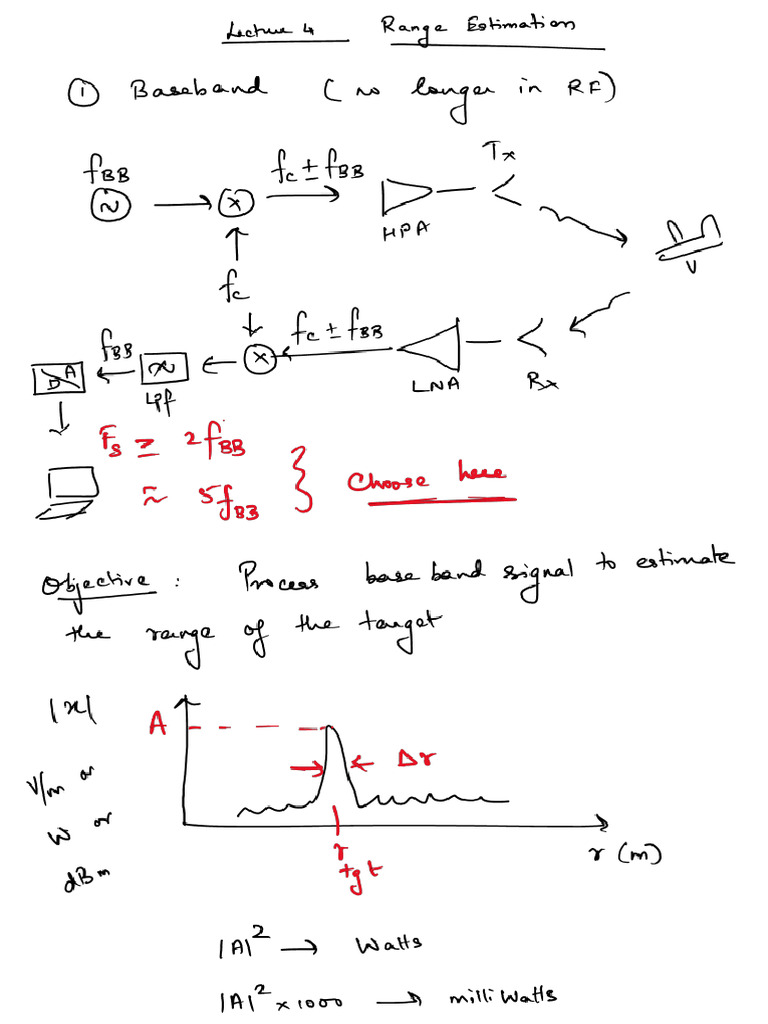 Lecture 4 Range Estimation
① Baseband (no longer in RF)
f_BB f_c ± f_BB Tx
~ x
HPA
v
f_c
f_BB f_c ± f_BB
A D x
Lpf LNA Rx
F_s ≥ 2f_BB
≈ 5f_BB } Choose here
Objective : Process base band signal to estimate
the range of the target
|x| A
Δr
V/m or
W or
dBm
r tgt
r (m)
|A|² → Watts
|A|² x 1000 → milliWatts